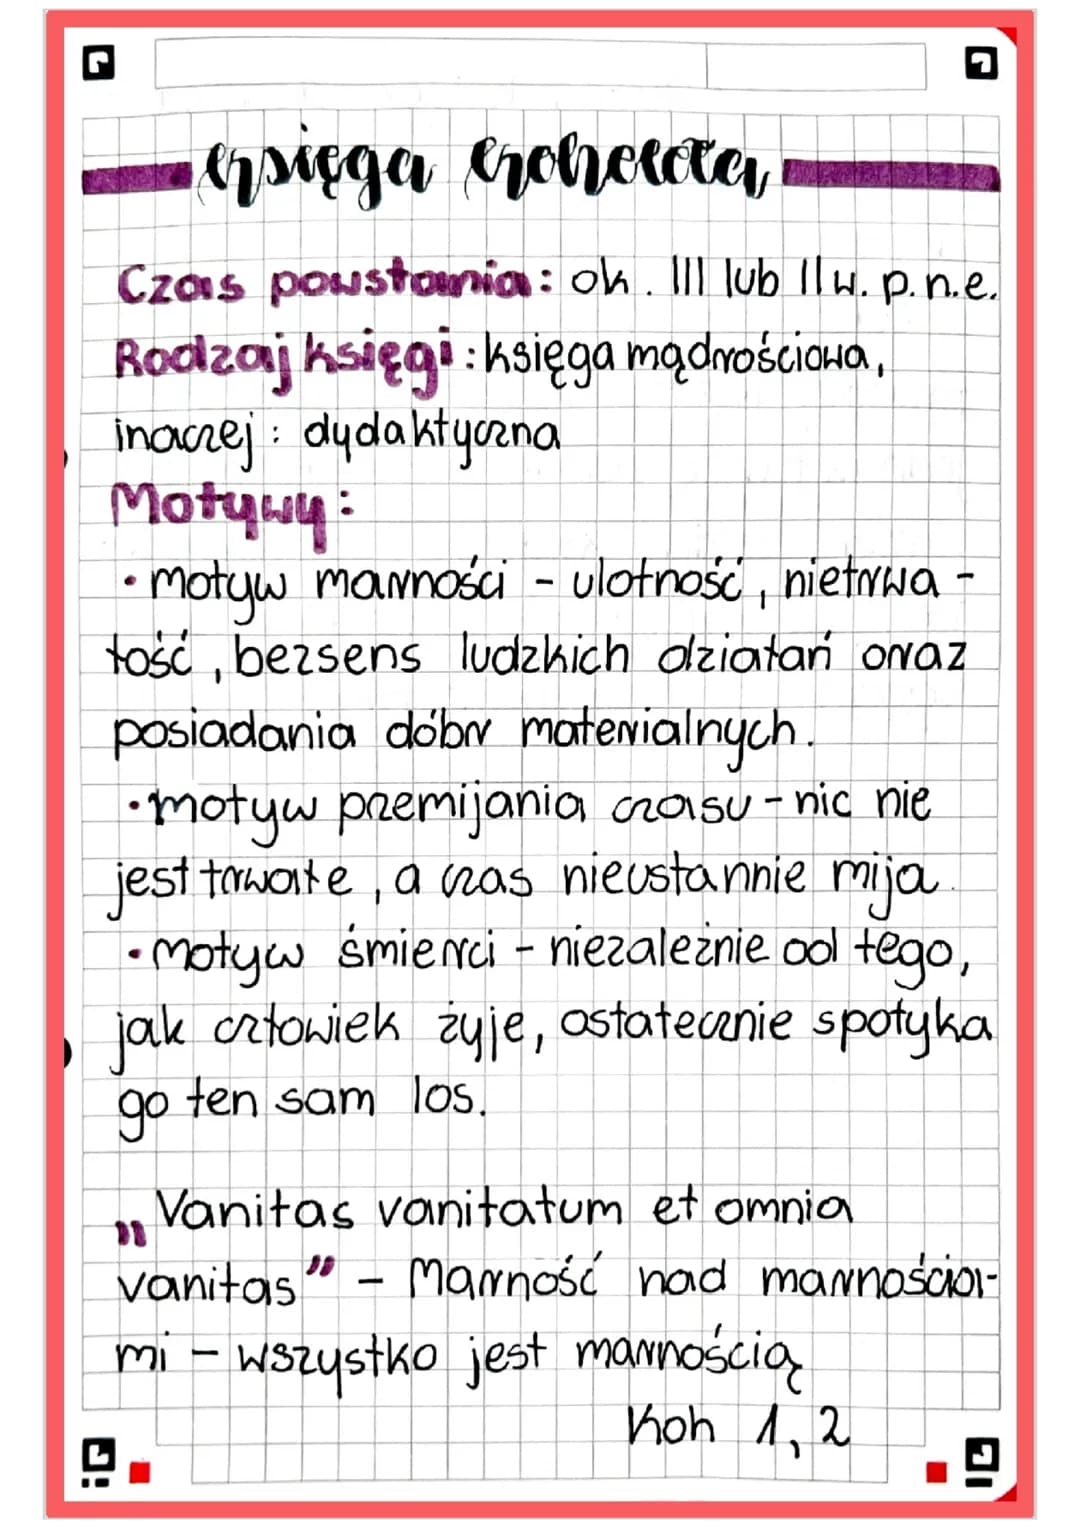 księga koheleta
Czas powstania: ok. III lub II w. p.n.e.
Rodzaj księgi: księga mądrościowa,
inaczej: dydaktyczna
Motywy:
• motyw marności - ulotność, nietrwa-
łość, bezsens ludzkich działań oraz
posiadania dóbr materialnych.
• motyw przemijania czasu - nic nie
jest trwałe, a czas nieustannie mija.
• motyw śmierci - niezależnie od tego,
jak człowiek żyje, ostatecznie spotyka
go ten sam los.
„Vanitas vanitatum et omnia
vanitas” - Marność nad marnościa-
mi - wszystko jest marnością
Koh 1, 2